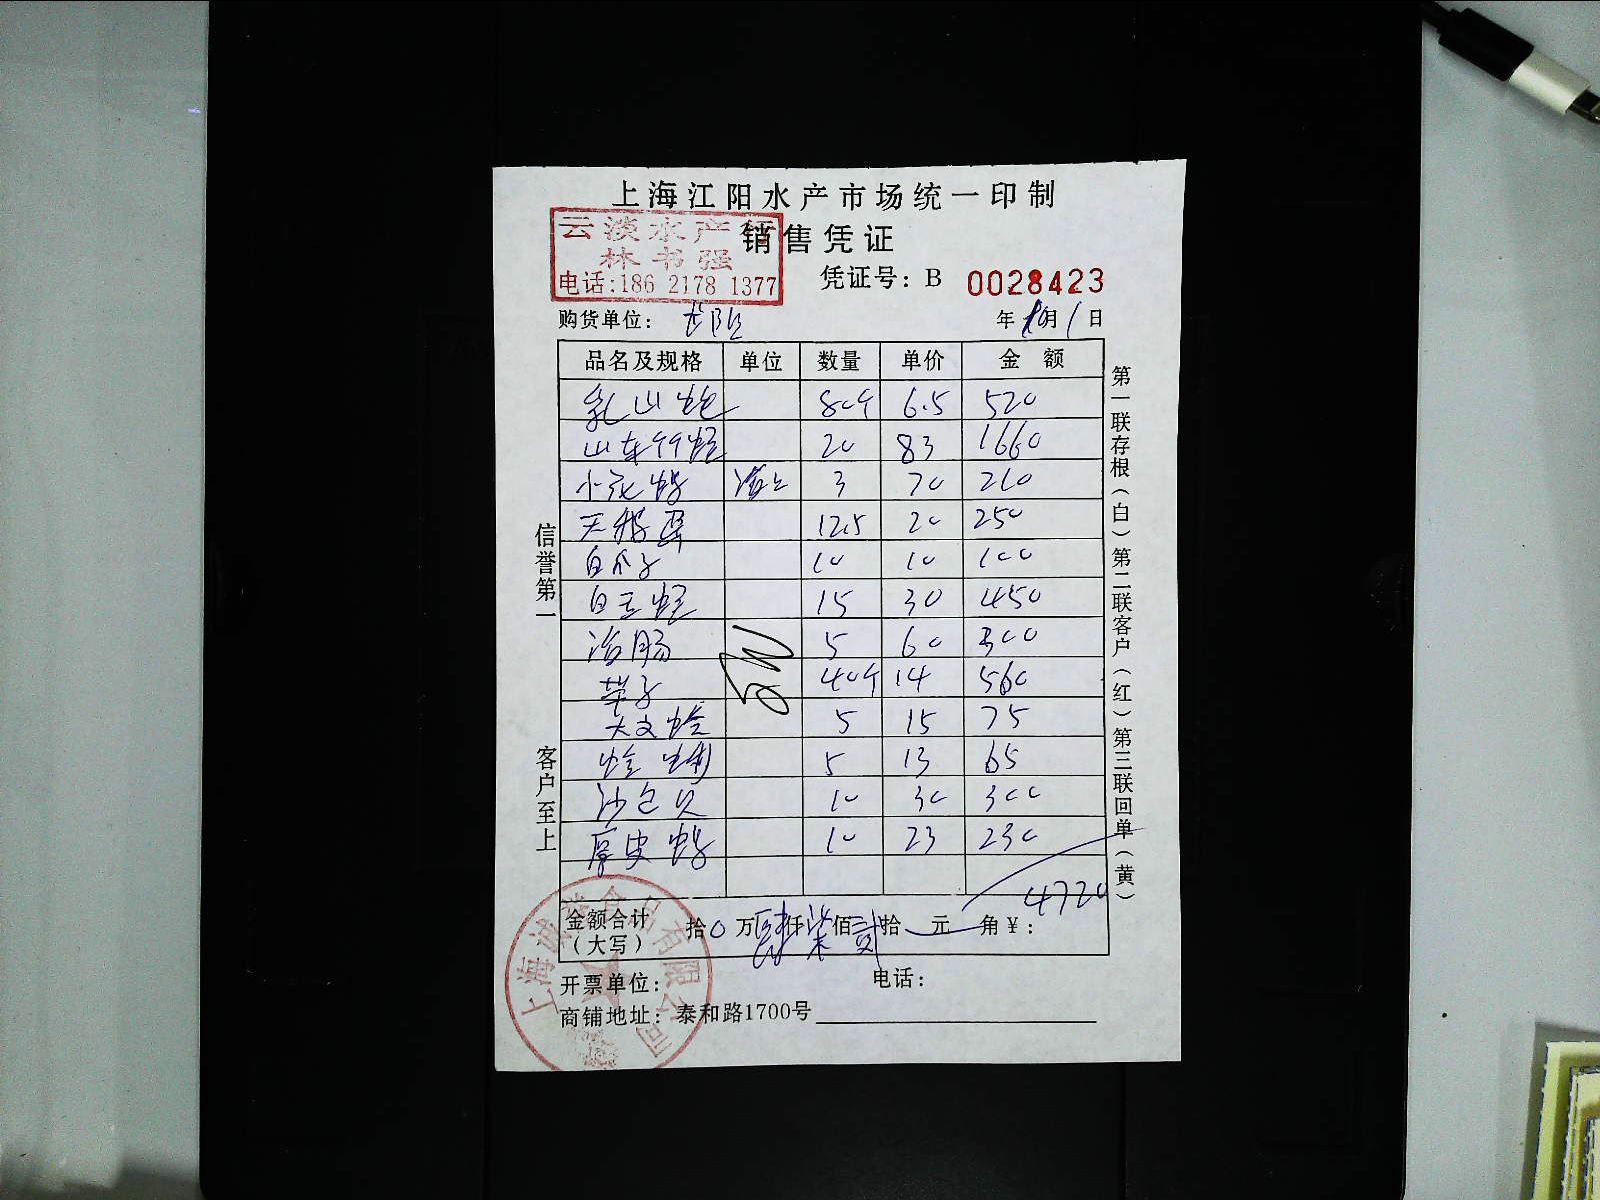 上海江阳水产市场统一印制
云淡水产行
销售凭证
林书强
电话:186 2178 1377
凭证号: B 0028423
购货单位: 长阳
年 10月 1 日
品名及规格 单位 数量 单价 金额
乳山蚝 80个 6.5 520
山东竹蛏 20 83 1660
小花螺 3 70 210
天鹅蛋 12.5 20 250
白瓜子 10 10 100
白玉蛏 15 30 450
海肠 5 60 300
带子 40个 14 560
大文蛤 5 15 75
蛤蜊 5 13 65
沙白贝 10 30 300
厚皮螺 10 23 230
金额合计
(大写)
拾0万肆仟柒佰贰拾 元 角¥: 4720
开票单位: 电话:
商铺地址: 泰和路1700号
信誉第一
客户至上
第一联存根(白)第二联客户(红)第三联回单(黄)